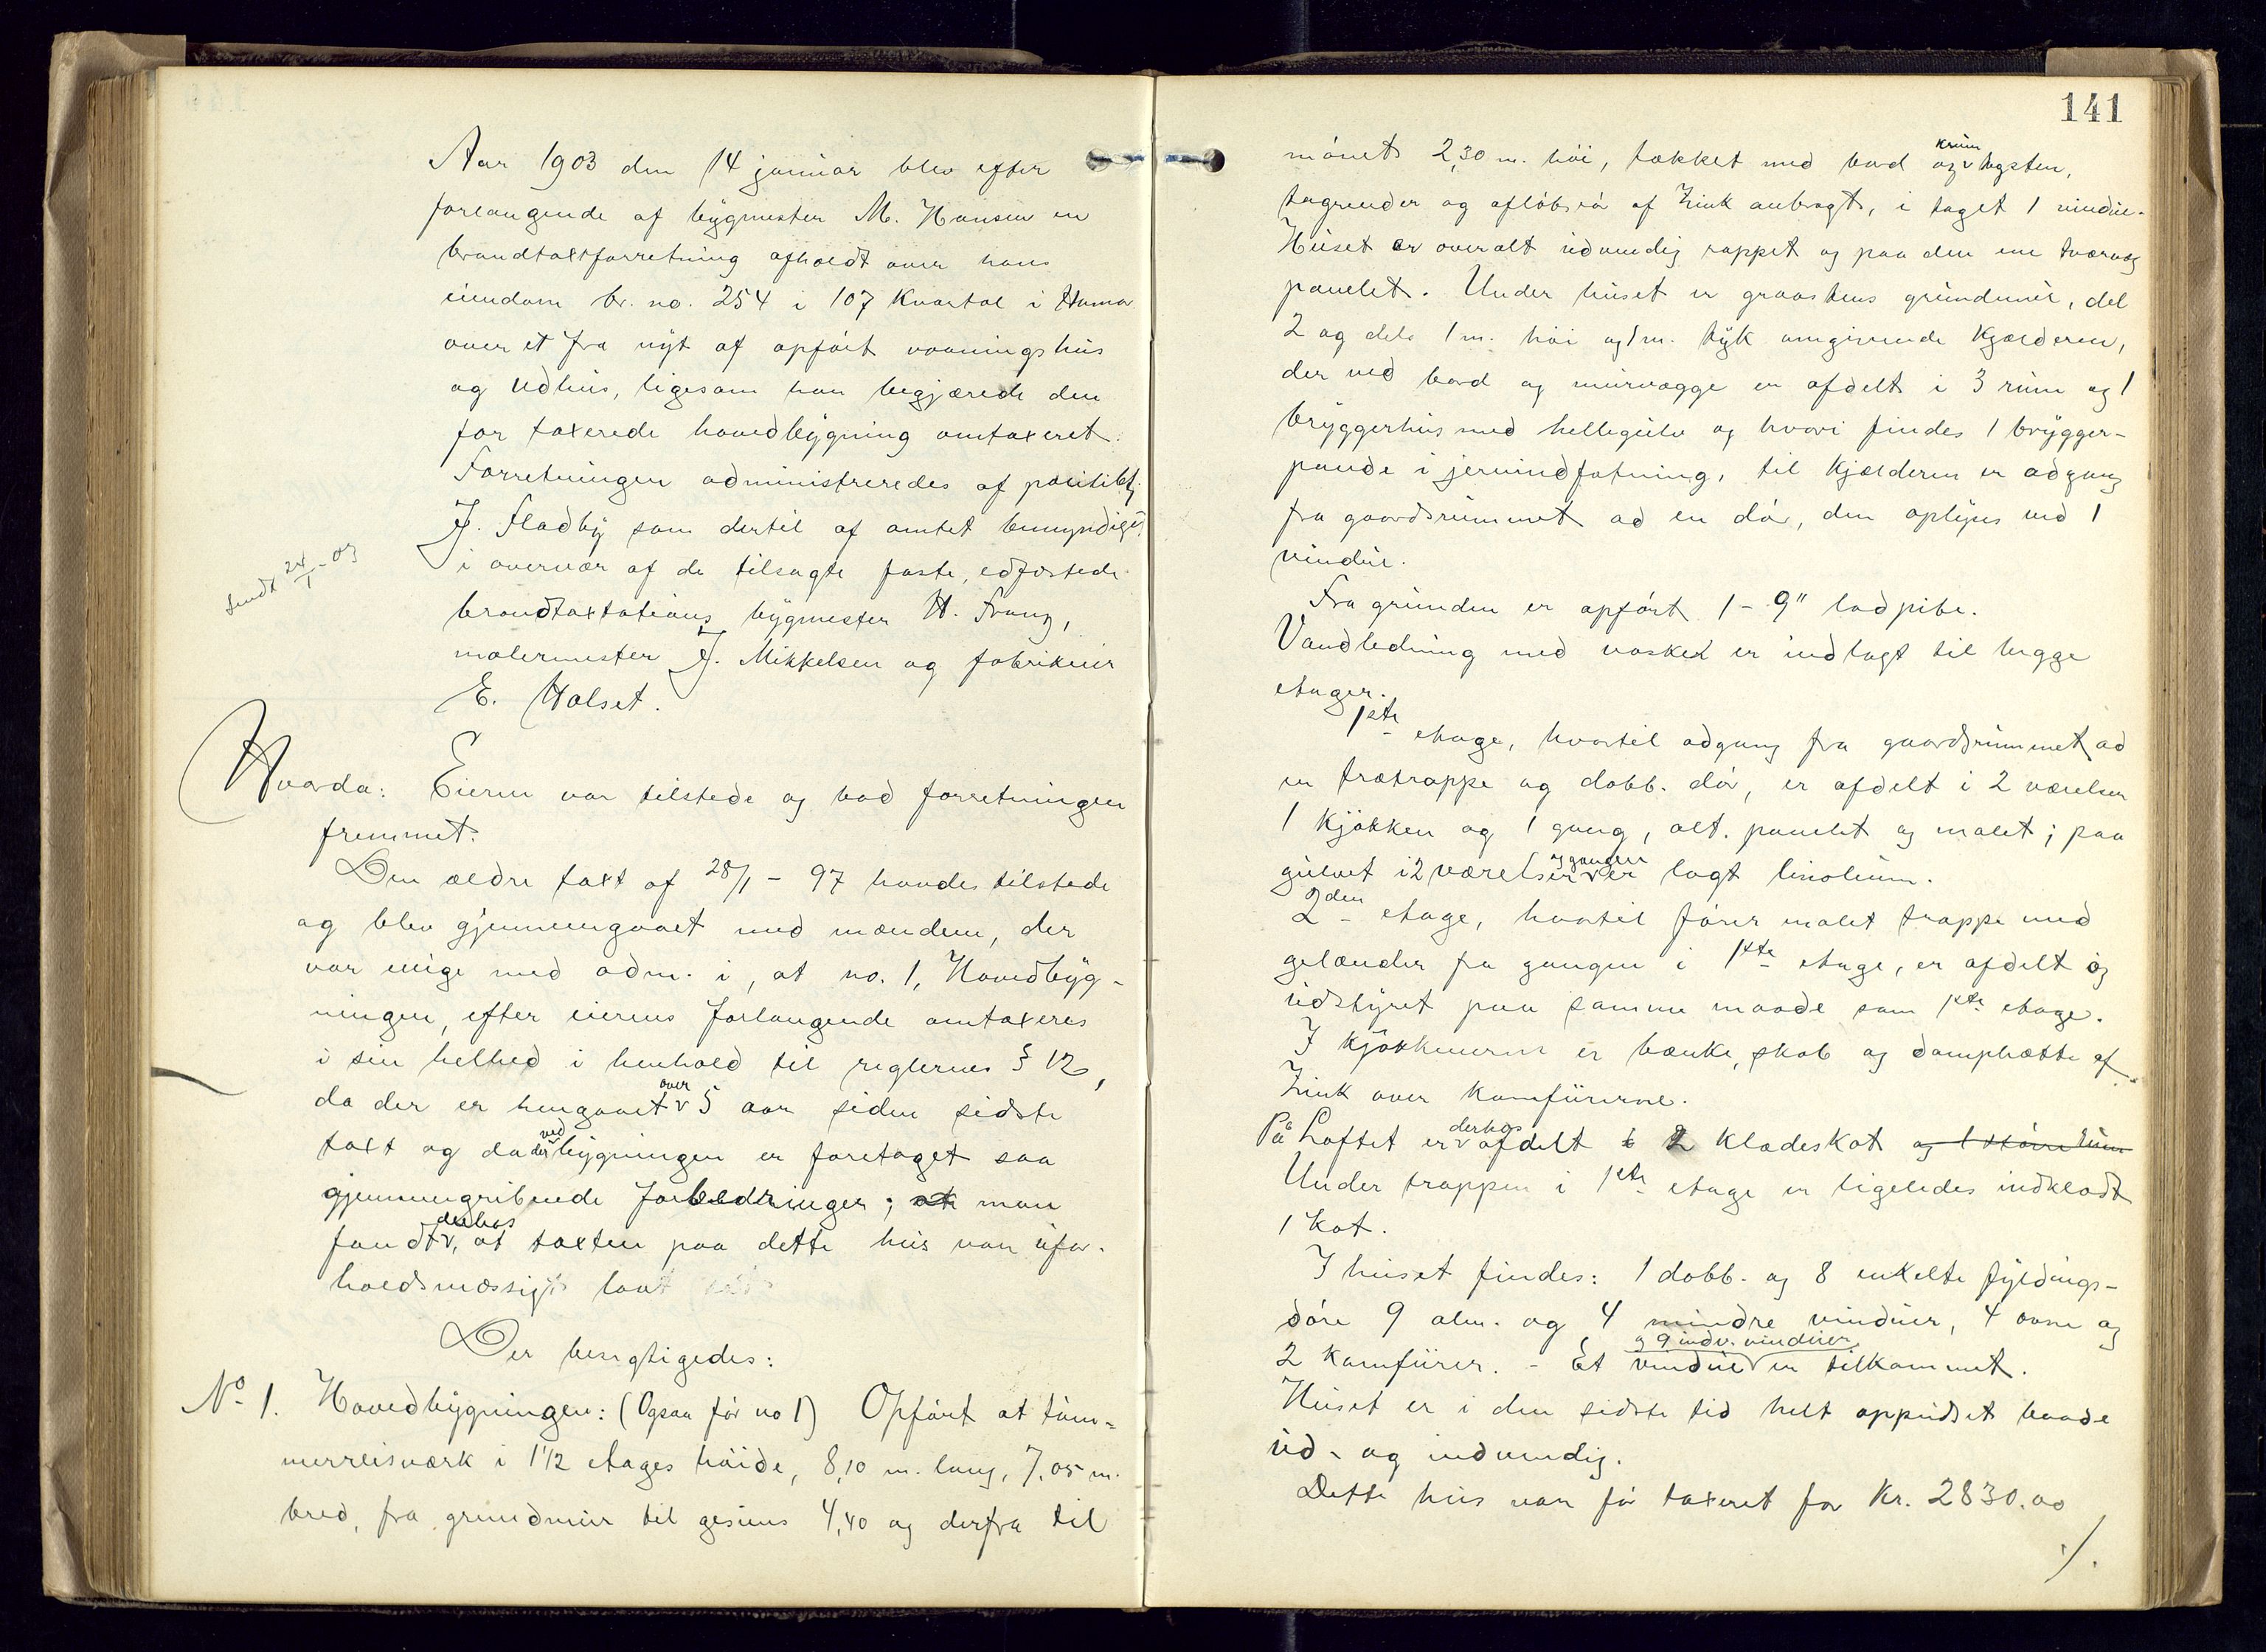 Aar 1903 den 14 januar blev efter
forlangende af bygmester M. Hansen en
brandtaxtforretning afholdt over hans
eiendom br. no. 254 i 107 Kvartal i Hamar
over et fra nyt af opført vaaningshus
og Udhus, ligesom han begjærede den
før taxerede hovedbygning omtaxeret.
Forretningen administreredes af politibtj.
J. Fladby som dertil af amtet bemyndiget
i overvær af de tilsagte faste, edfæstede
Sendt 24/1 - 03
brandtaxtations bygmester H. Franz,
malermester J. Mikkelsen og fabrikeier
E. Halset.
Hvorda: Eieren var tilstede og bad forretningen
fremmet.
Den ældre taxt af 28/1 - 97 havdes tilstede
og blev gjennemgaaet med mændene, der
var enige med adm. i, at no. 1, Hovedbyg-
ningen, efter eierens forlangende omtaxeres
i sin helhed i henhold til reglernes § 12,
da der er hengaaet over 5 aar siden sidste
taxt og da der ved bygningen er foretaget saa
gjennemgribende forbedringer; at man
fandt derhos, at taxten paa dette hus var ufor-
holdsmæssigt lavt
Der besigtigedes:
No 1. Hovedbygningen: (Ogsaa før no 1) Opført at tøm-
merreisværk i 1 1/2 etages høide, 8,10 m. lang, 7,05 m.
bred, fra grundmur til gesims 4,40 og derfra til
141
mønet 2,30 m. høi, tækket med bord og krum tagsten,
tagrender og afløbsrør af Zink anbragt, i taget 1 vindue.
Huset er overalt udvendig rappet og paa den ene tværvæg
panelet. Under huset er graastens grundmur, del
2 og dels 1 m. høi og 1 m. tyk omgivende Kjælderen,
der ved bord og murvægge er afdelt i 3 rum og 1
bryggerhus med hellegulv og hvori findes 1 brygger-
pande i jernindfatning, til Kjælderen er adgang
fra gaardsrummet ad en dør, den oplyses ved 1
vindue.
Fra grunden er opført 1 - 9" lodpibe.
Vandledning med vasker er indlagt til begge
etager.
1ste etage, hvortil adgang fra gaardsrummet ad
en trætrappe og dobb. dør, er afdelt i 2 værelser
1 Kjøkken og 1 gang, alt. panelet og malet; paa
gulvet i 2 værelser og gangen er lagt linoleum.
2den etage, hvortil fører malet trappe med
gelænder fra gangen i 1ste etage, er afdelt og
udstyret paa samme maade som 1ste etage.
I Kjøkkenerne er bænke, skab og damphætte af
Zink over Komfurerne.
På Loftet er derhos afdelt 2 klædeskot og 1 større rum
Under trappen i 1ste etage er ligeledes indklædt
1 Kot.
I huset findes: 1 dobb. og 8 enkelte fyldings-
døre 9 alm. og 4 mindre vinduer, 4 ovne og
2 Komfurer. - Et vindue og 9 indv. vinduer er tilkommet.
Huset er i den sidste tid helt oppudset baade
ud- og indvendig.
Dette hus var før taxeret for Kr. 2830.00
./.